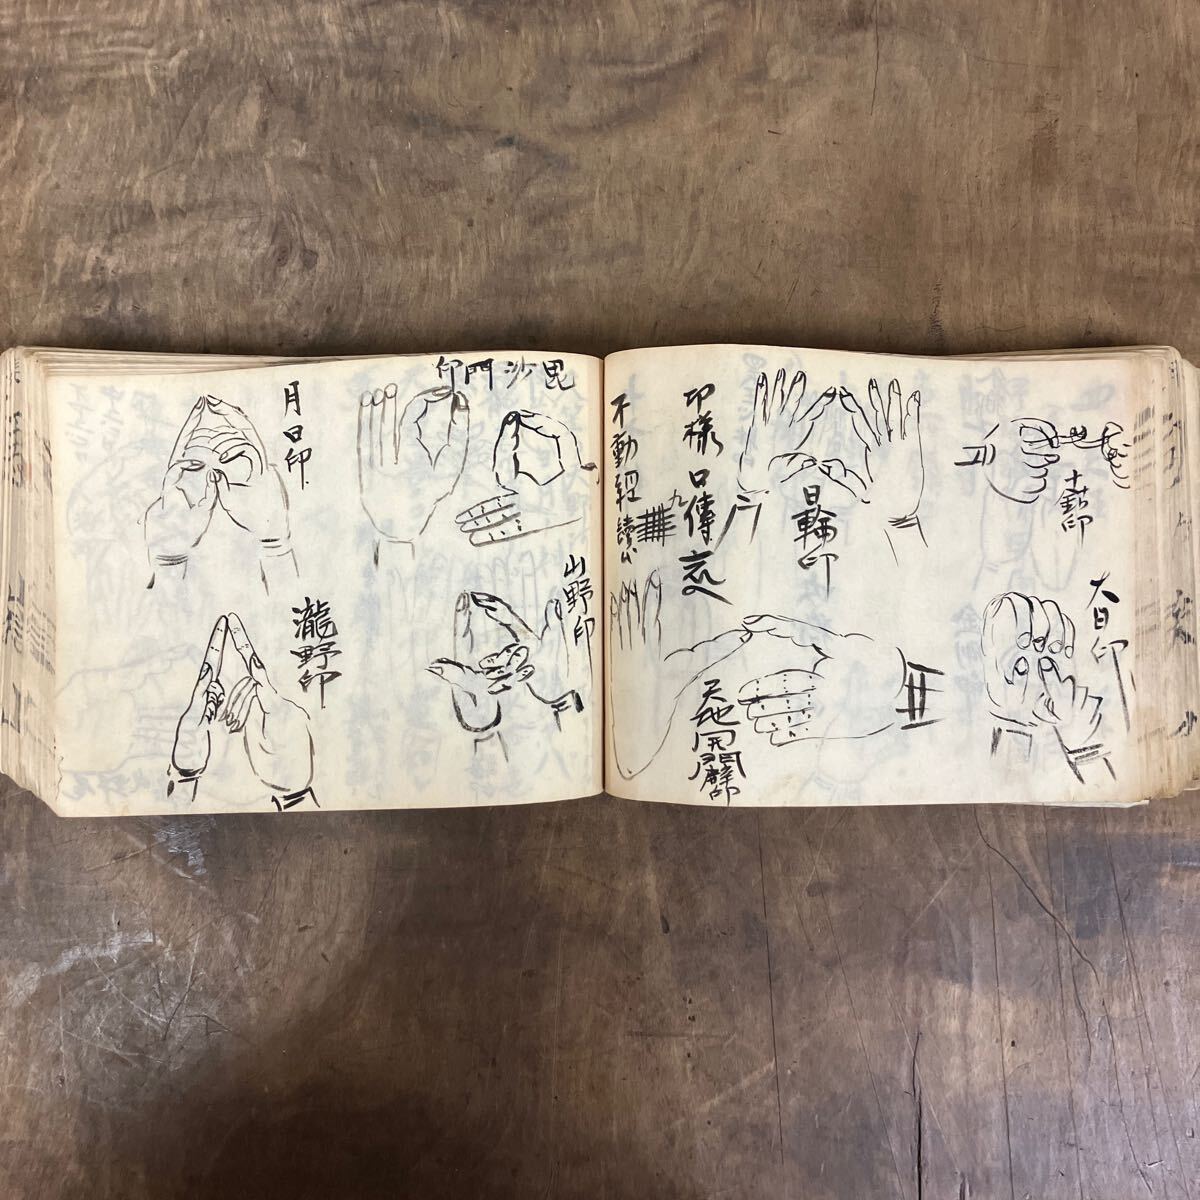 大日印
日輪印
印様口傳
天地開闢印
不動経
九
毘沙門印
山野印
月日印
瀧野印